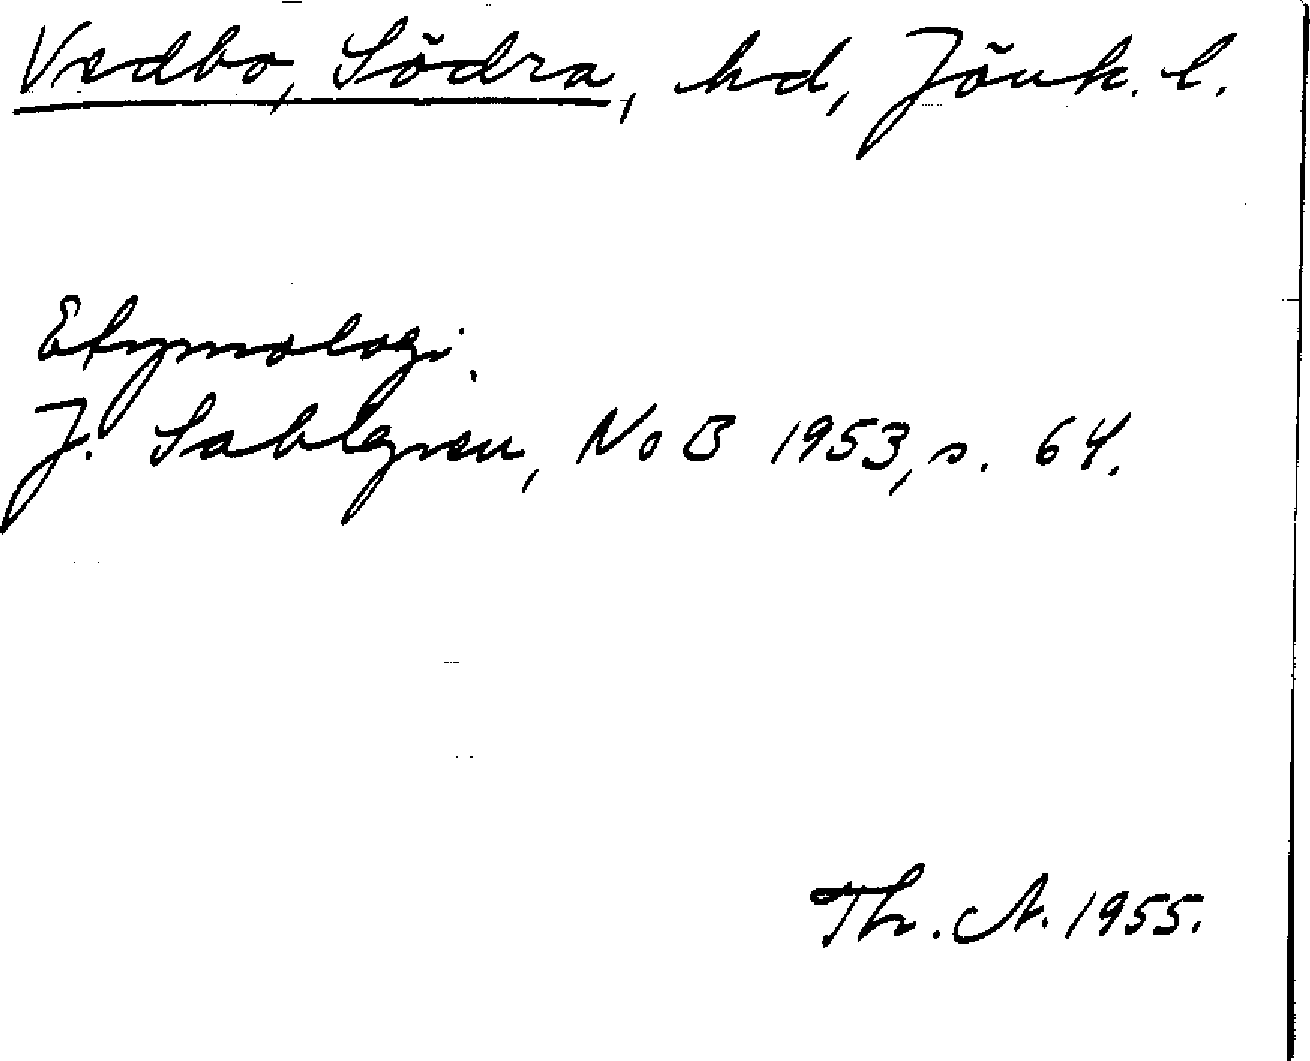 Vedbo, Södra, hd, Jönk. l.
Etymologi.
J. Sahlgren, NoB 1953, s. 64.
Th. A. 1955.